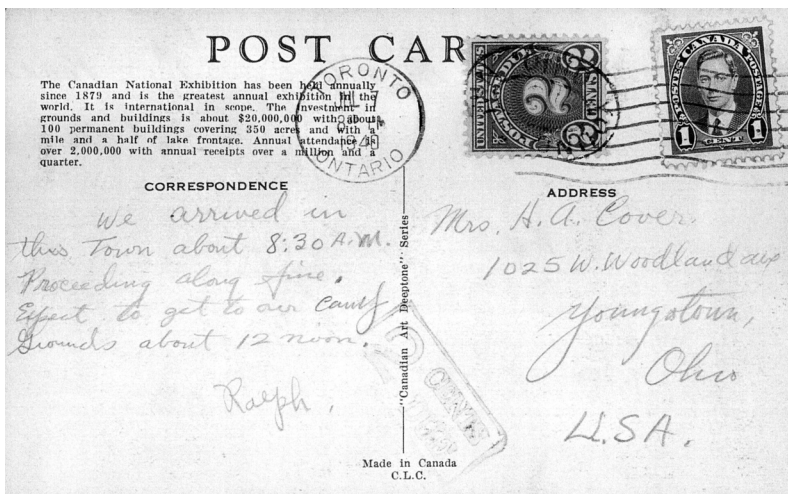 POST CARD
The Canadian National Exhibition has been held annually
since 1879 and is the greatest annual exhibition in the
world. It is international in scope. The investment in
grounds and buildings is about $20,000,000 with about
100 permanent buildings covering 350 acres and with a
mile and a half of lake frontage. Annual attendance is
over 2,000,000 with annual receipts over a million and a
quarter.
TORONTO
PM
1940
ONTARIO
UNITED STATES
POSTAGE DUE
2
POSTES CANADA POSTAGE
1 CENT 1
CORRESPONDENCE
We arrived in
this Town about 8:30 A.M.
Proceeding along fine.
Expect to get to our camp
Grounds about 12 noon.
Ralph.
"Canadian Art Deeptone" Series
ADDRESS
Mrs. H. A. Cover.
1025 W. Woodland ave
Youngstown,
Ohio
U.S.A.
CENTS
Made in Canada
C.L.C.